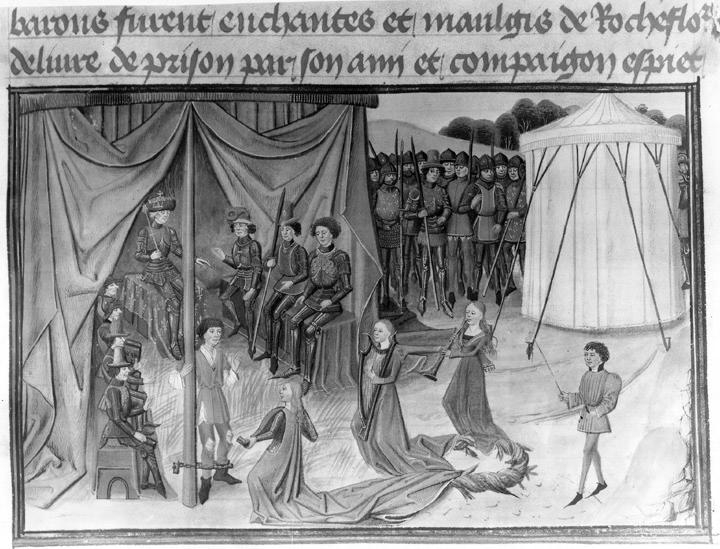 barons furent enchantes et maulgis de Rocheflor
deliure de prison par son amj et compaignon espiet